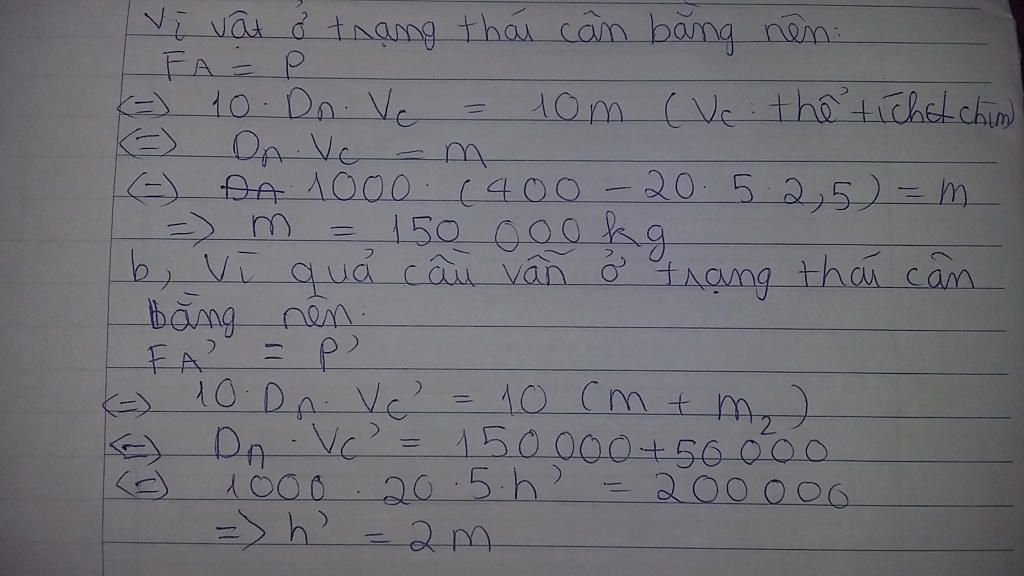 Vì vật ở trạng thái cân bằng nên:
FA = P
<=> 10. Dn. Vc = 10m (Vc: thể tích chìm)
<=> Dn. Vc = m
<=> 1000. (400 - 20. 5. 2,5) = m
=> m = 150 000 kg
b, Vì quả cầu vẫn ở trạng thái cân
bằng nên:
FA' = P'
<=> 10. Dn. Vc' = 10 (m + m2)
<=> Dn. Vc' = 150 000 + 50 000
<=> 1000. 20. 5. h' = 200 000
=> h' = 2m